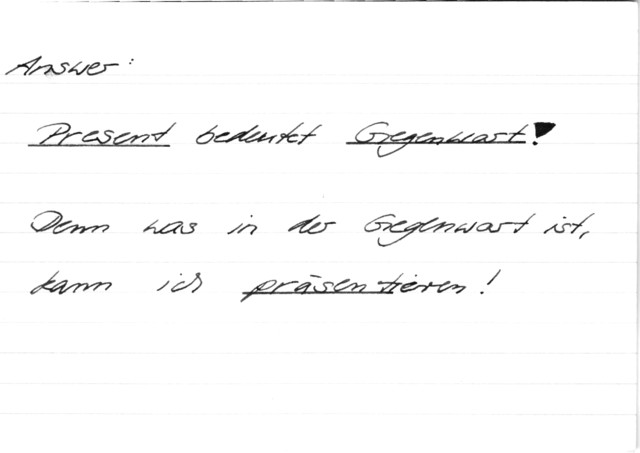 Answer:
Present bedeutet Gegenwart!
Denn was in der Gegenwart ist,
kann ich präsentieren!